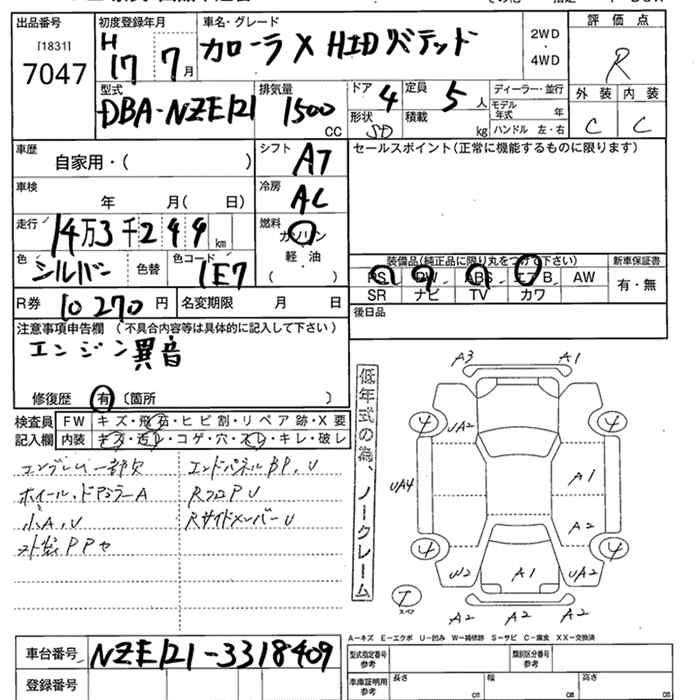 出品番号 初度登録年月 車名・グレード 評価点
[1831] 7047
H 17 7月
カローラ X HIDリミテッド
2WD・4WD
R
型式 排気量 ドア 定員 ディーラー・並行 外装 内装
DBA-NZE121 1500 CC 4 5人
モデル年式 年
形状 SD 積載 kg ハンドル 左・右
C C
車歴 自家用・( ) シフト AT セールスポイント(正常に機能するものに限ります)
車検 年 月( 日) 冷房 AC
走行 14万3千299km 燃料 ガソリン
軽・油
( )
色 シルバー 色替 色コード 1E7
装備品(純正品に限り丸をつけて下さい) 新車保証書
PS PW ABS エアB AW 有・無
SR ナビ TV カワ
R券 10270円 名変期限 月 日
後日品
注意事項申告欄 (不具合内容等は具体的に記入して下さい)
エンジン異音
修復歴 有 〔箇所 〕
検査員記入欄
FW キズ・飛石・ヒビ割・リペア跡・X要
内装 キズ・汚レ・コゲ・穴・スレ・キレ・破レ
エンブレム一部欠 エンドパネルBP,U
ホイール、ドアミラーA RフロアU
小A,U Rサイドメンバー U
低年式の為、ノークレーム
A3 A1
4 UA2 4
UA4 A1
A2
4 4
W2 A1 UA2
T スペア
A2 A2 A2
A－キズ E－エクボ U－凹み W－補修跡 S－サビ C－腐食 XX－交換済
車台番号 NZE121-3318409
型式指定番号 参考 類別区分番号 参考
登録番号
車庫証明用 参考 長さ cm 幅 cm 高さ cm